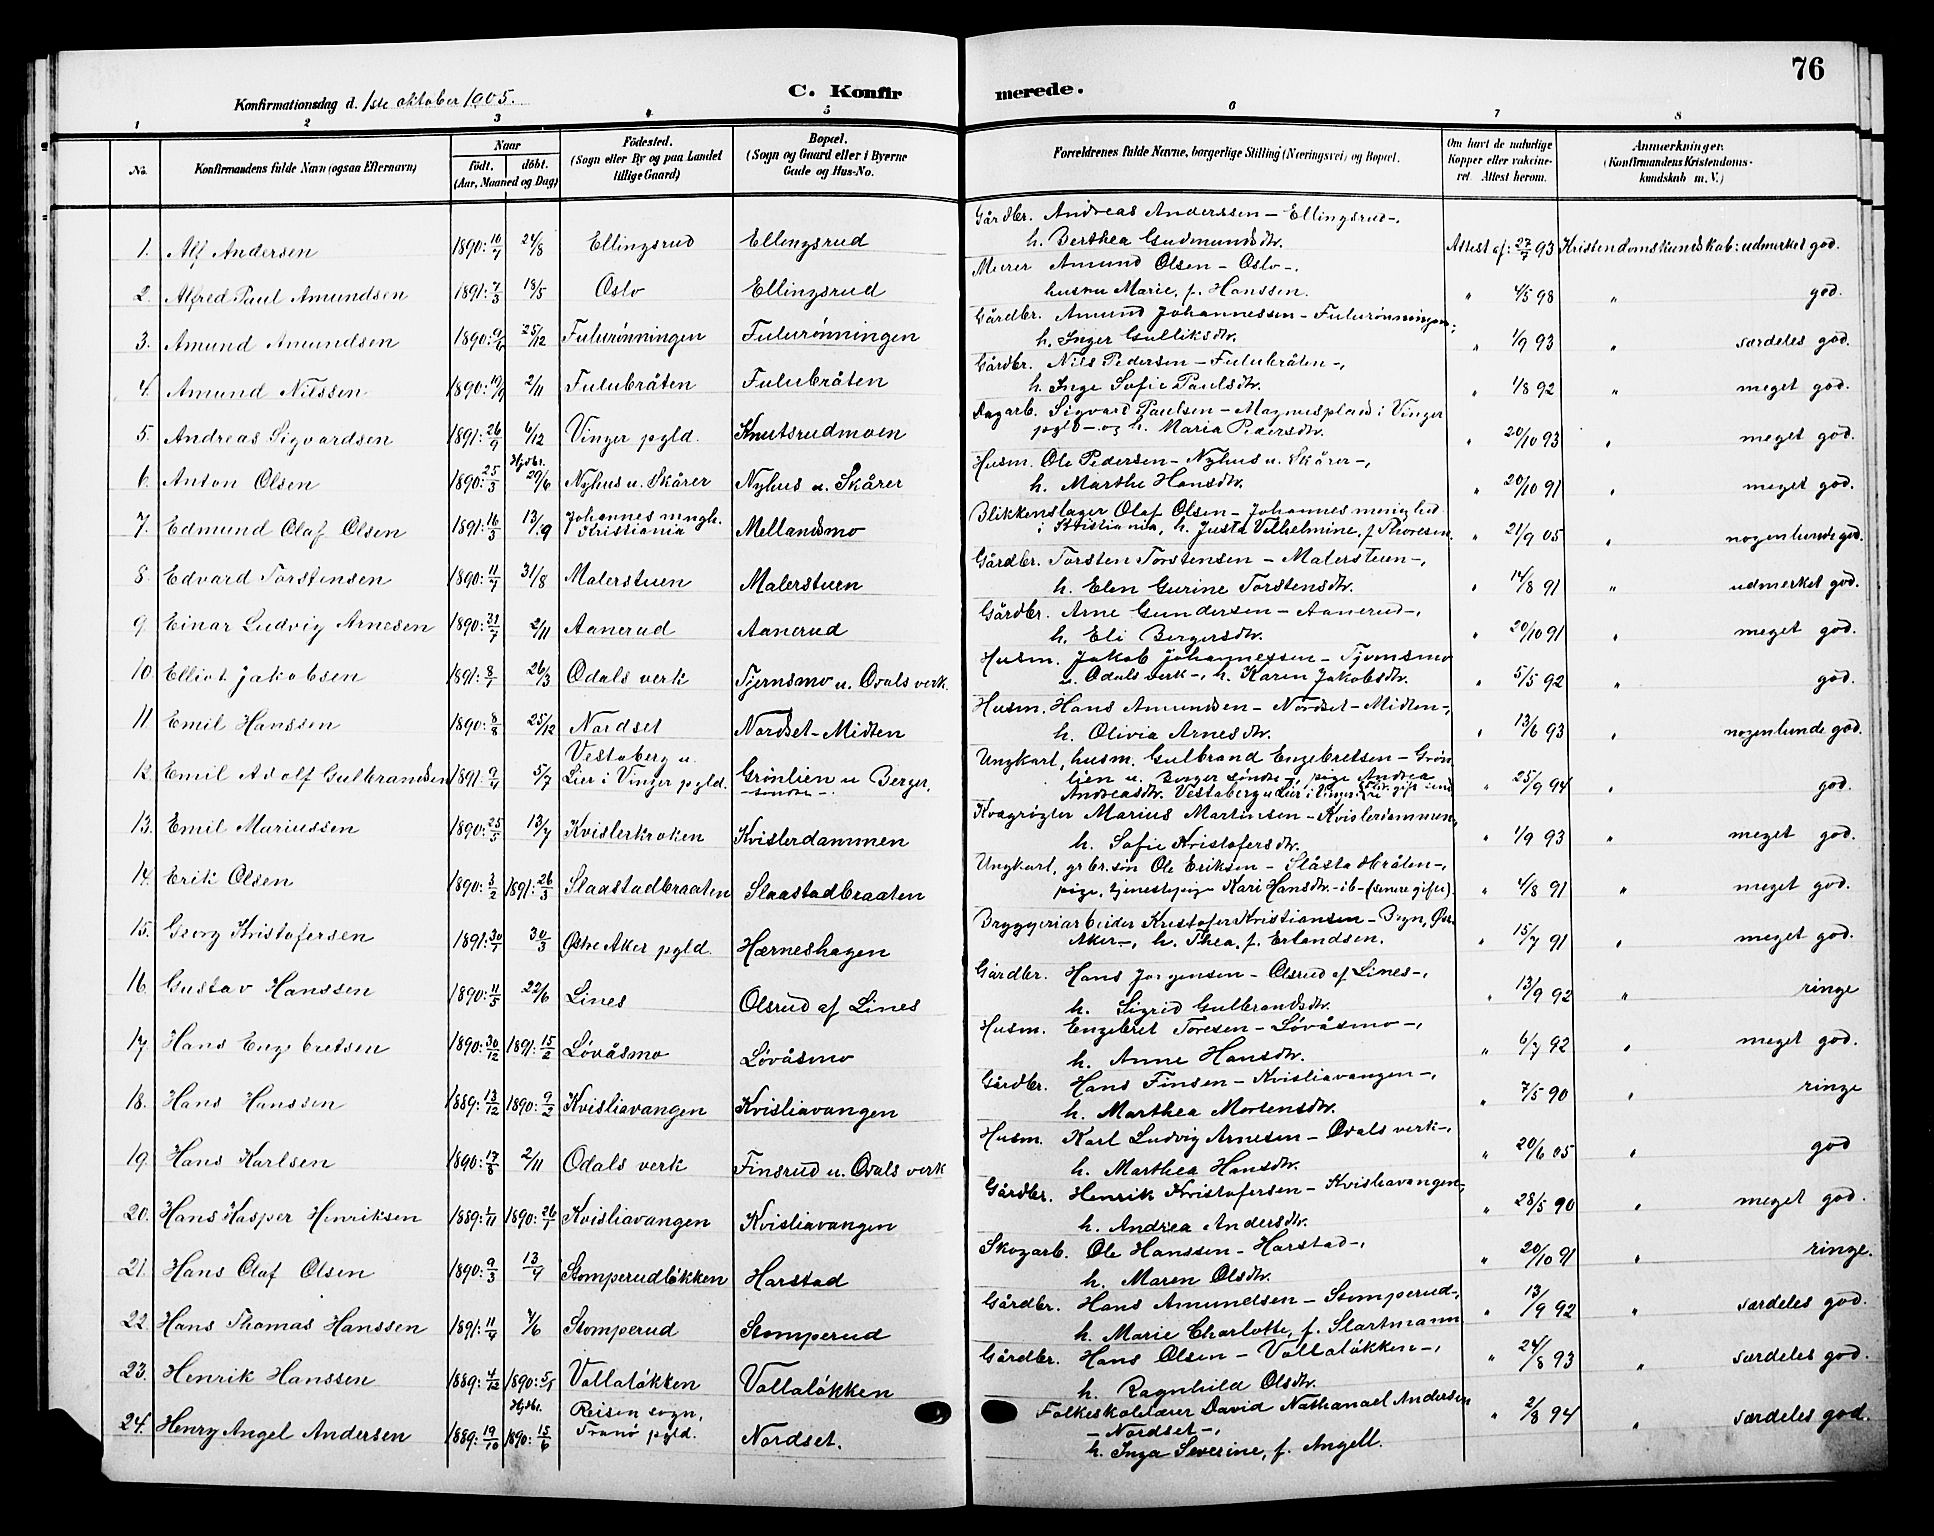 76
Konfirmationsdag d. 1ste oktober 1905.
C. Konfirmerede.
1 2 3 4 5 6 7 8
No. Konfirmandens fulde Navn (ogsaa Efternavn) Naar født. døbt. (Aar, Maaned og Dag) Födested. (Sogn eller By og paa Landet tillige Gaard) Bopæl. (Sogn og Gaard eller i Byerne Gade og Hus-No. Forældrenes fulde Navne, borgerlige Stilling (Næringsvei) og Bopæl. Om havt de naturlige Kopper eller vaccineret. Attest herom. Anmærkninger. (Konfirmandens Kristendomskundskab m. V.)
1. Alf Andersen 1890: 10/7 24/8 Ellingsrud Ellingsrud Gårdbr. Andreas Anderssen - Ellingsrud -,
h. Berthea Gudmundsdtr. Attest af: 27/7 93 Kristendomskundskab: udmerket god.
2. Alfred Paul Amundsen 1891: 7/3 18/5 Oslo Ellingsrud Murer Amund Olsen - Oslo -,
hustru Marie, f. Hanssen. " 4/5 98 " god.
3. Amund Amundsen 1890: 9/6 25/12 Fulurønningen Fulurønningen Gårdbr. Amund Johannessen - Fulurønningen -,
h. Inger Gulliksdtr. " 1/9 93 " særdeles god.
4. Amund Nilssen 1890: 19/9 2/11 Fulubråten Fulubråten Gårdbr. Nils Pedersen - Fulubråten -,
h. Inge Sofie Paulsdtr. " 1/8 92 " meget god.
5. Andreas Sigvardsen 1891: 26/9 6/12 Vinger pgld. Knutsrudmoen Dagarb. Sigvard Paulsen - Magnusplads i Vinger
pgld - og h. Maria Pedersdtr. " 20/10 93 " meget god.
6. Anton Olsen 1890: 25/3 Hjdbt. 29/6 Nyhus u. Skårer Nyhus u. Skårer Husm. Ole Pedersen - Nyhus u. Skårer -,
h. Marthe Hansdtr. " 20/10 91 " meget god.
7. Edmund Olaf Olsen 1891: 16/3 13/9 Johannes mngh. Kristiania Mellandsmo Blikkenslager Olaf Olsen - Johannes menighed
i Kristiania, h. Justa Vilhelmine, f. Thoresen. " 21/9 05 " nogenlunde god.
8. Edvard Torstensen 1890: 11/7 31/8 Malerstuen Malerstuen Gårdbr. Torsten Torstensen - Malerstuen -,
h. Elen Gurine Torstensdtr. " 14/8 91 " udmerket god.
9. Einar Ludvig Arnesen 1890: 31/7 2/11 Aanerud Aanerud Gårdbr. Arne Gundersen - Aanerud -,
h. Eli Bergersdtr. " 20/10 91 " meget god.
10. Elliot Jakobsen 1891: 8/1 26/3 Odals verk Tjernsmo u. Odals verk. Husm. Jakob Johannessen - Tjernsmo
u. Odals verk -, h. Karen Jakobsdtr. " 5/5 92 " god.
11 Emil Hanssen 1890: 8/8 25/12 Nordset Nordset - Midten Husm. Hans Amundsen - Nordset - Midten -,
h. Olivia Arnesdtr. " 13/6 93 " nogenlunde god.
12. Emil Adolf Gulbrandsen 1891: 9/4 5/7 Vestaberg u. Lier i Vinger pgld. Grönlien u Berger, søndre -. Ungkarl, husm. Gulbrand Engebretsen - Grönlien
u. Berger søndre -, pige Andrea
Andreasdtr. Vestaberg u Lier i Vinger " 25/9 94 " god.
13. Emil Mariussen 1890: 25/5 13/7 Kvislerkroken Kvislerdammen Kvægrøgter Marius Martinsen - Kvislerdammen,
h. Sofie Kristofersdtr. " 1/9 93 " meget god.
14. Erik Olsen 1890: 3/2 1891: 26/3 Slaastadbraaten Slaastadbraaten Ungkarl, gr.br.sön Ole Eriksen - Slåstadbråten -,
pige, tjenestepige Kari Hansdtr. - ib - (senere gifte). " 4/8 91 " meget god.
15. Georg Kristofersen 1891: 30/1 30/3 Østre Aker pgld. Hærneshagen Bryggeriarbeider Kristofer Kristiansen - Bryn, Øst.
Aker -, h. Thea, f. Erlandsen. " 15/7 91 " meget god.
16. Gustav Hanssen 1890: 11/5 22/6 Lines Olsrud af Lines Gårdbr. Hans Jörgensen - Olsrud af Lines -,
h. Sigrid Gulbrandsdtr. " 13/9 92 " ringe
17. Hans Engebretsen 1890: 30/12 1891: 15/2 Løvåsmo Løvåsmo Husm. Engebret Toresen - Løvåsmo -,
h. Anne Hansdtr. " 6/7 92 " meget god.
18. Hans Hanssen 1889: 13/12 1890: 9/2 Kvisliavangen Kvisliavangen Gårdbr. Hans Finsen - Kvisliavangen -,
h. Marthea Mortensdtr. " 7/5 90 " ringe
19. Hans Karlsen 1890: 17/8 2/11 Odals verk Finsrud u. Odals verk Husm. Karl Ludvig Arnesen - Odals verk -,
h. Marthea Hansdtr. " 20/6 05 " god
20. Hans Kasper Henriksen 1889: 1/11 1890: 26/1 Kvisliavangen Kvisliavangen Gårdbr. Henrik Kristofersen - Kvisliavangen -,
h. Andrea Andersdtr. " 28/5 90 " meget god.
21. Hans Olaf Olsen 1890: 9/3 13/4 Stomperudløkken Harstad Skogarb. Ole Hanssen - Harstad -,
h. Maren Olsdtr. " 20/10 91 " ringe.
22. Hans Thomas Hanssen 1891: 11/4 7/6 Stomperud Stomperud Gårdbr. Hans Amundsen - Stomperud -,
h. Marie Charlotte, f. Slartmann " 13/9 92 " særdeles god.
23. Henrik Hanssen 1889: 4/12 1890: 5/1 Vollaløkken Vollaløkken Gårdbr. Hans Olsen - Vollaløkken -,
h. Ragnhild Olsdtr. " 24/8 93 " særdeles god.
24. Henry Angel Andersen 1889: 19/10 Hjdbt. 1890: 15/6 Reisen sogn, Tranø pgld. Nordset. Folkeskolelærer David Nathanael Andersen
- Nordset -,
h. Inga Severine, f. Angell. " 2/8 94 " særdeles god.